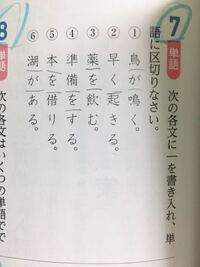 7
単語
次の各文に｜を書き入れ、単
語に区切りなさい。
① 鳥が鳴く。
② 早く起きる。
③ 薬を飲む。
④ 準備をする。
⑤ 本を借りる。
⑥ 湖がある。
8
単語
次の各文はいくつの単語でで